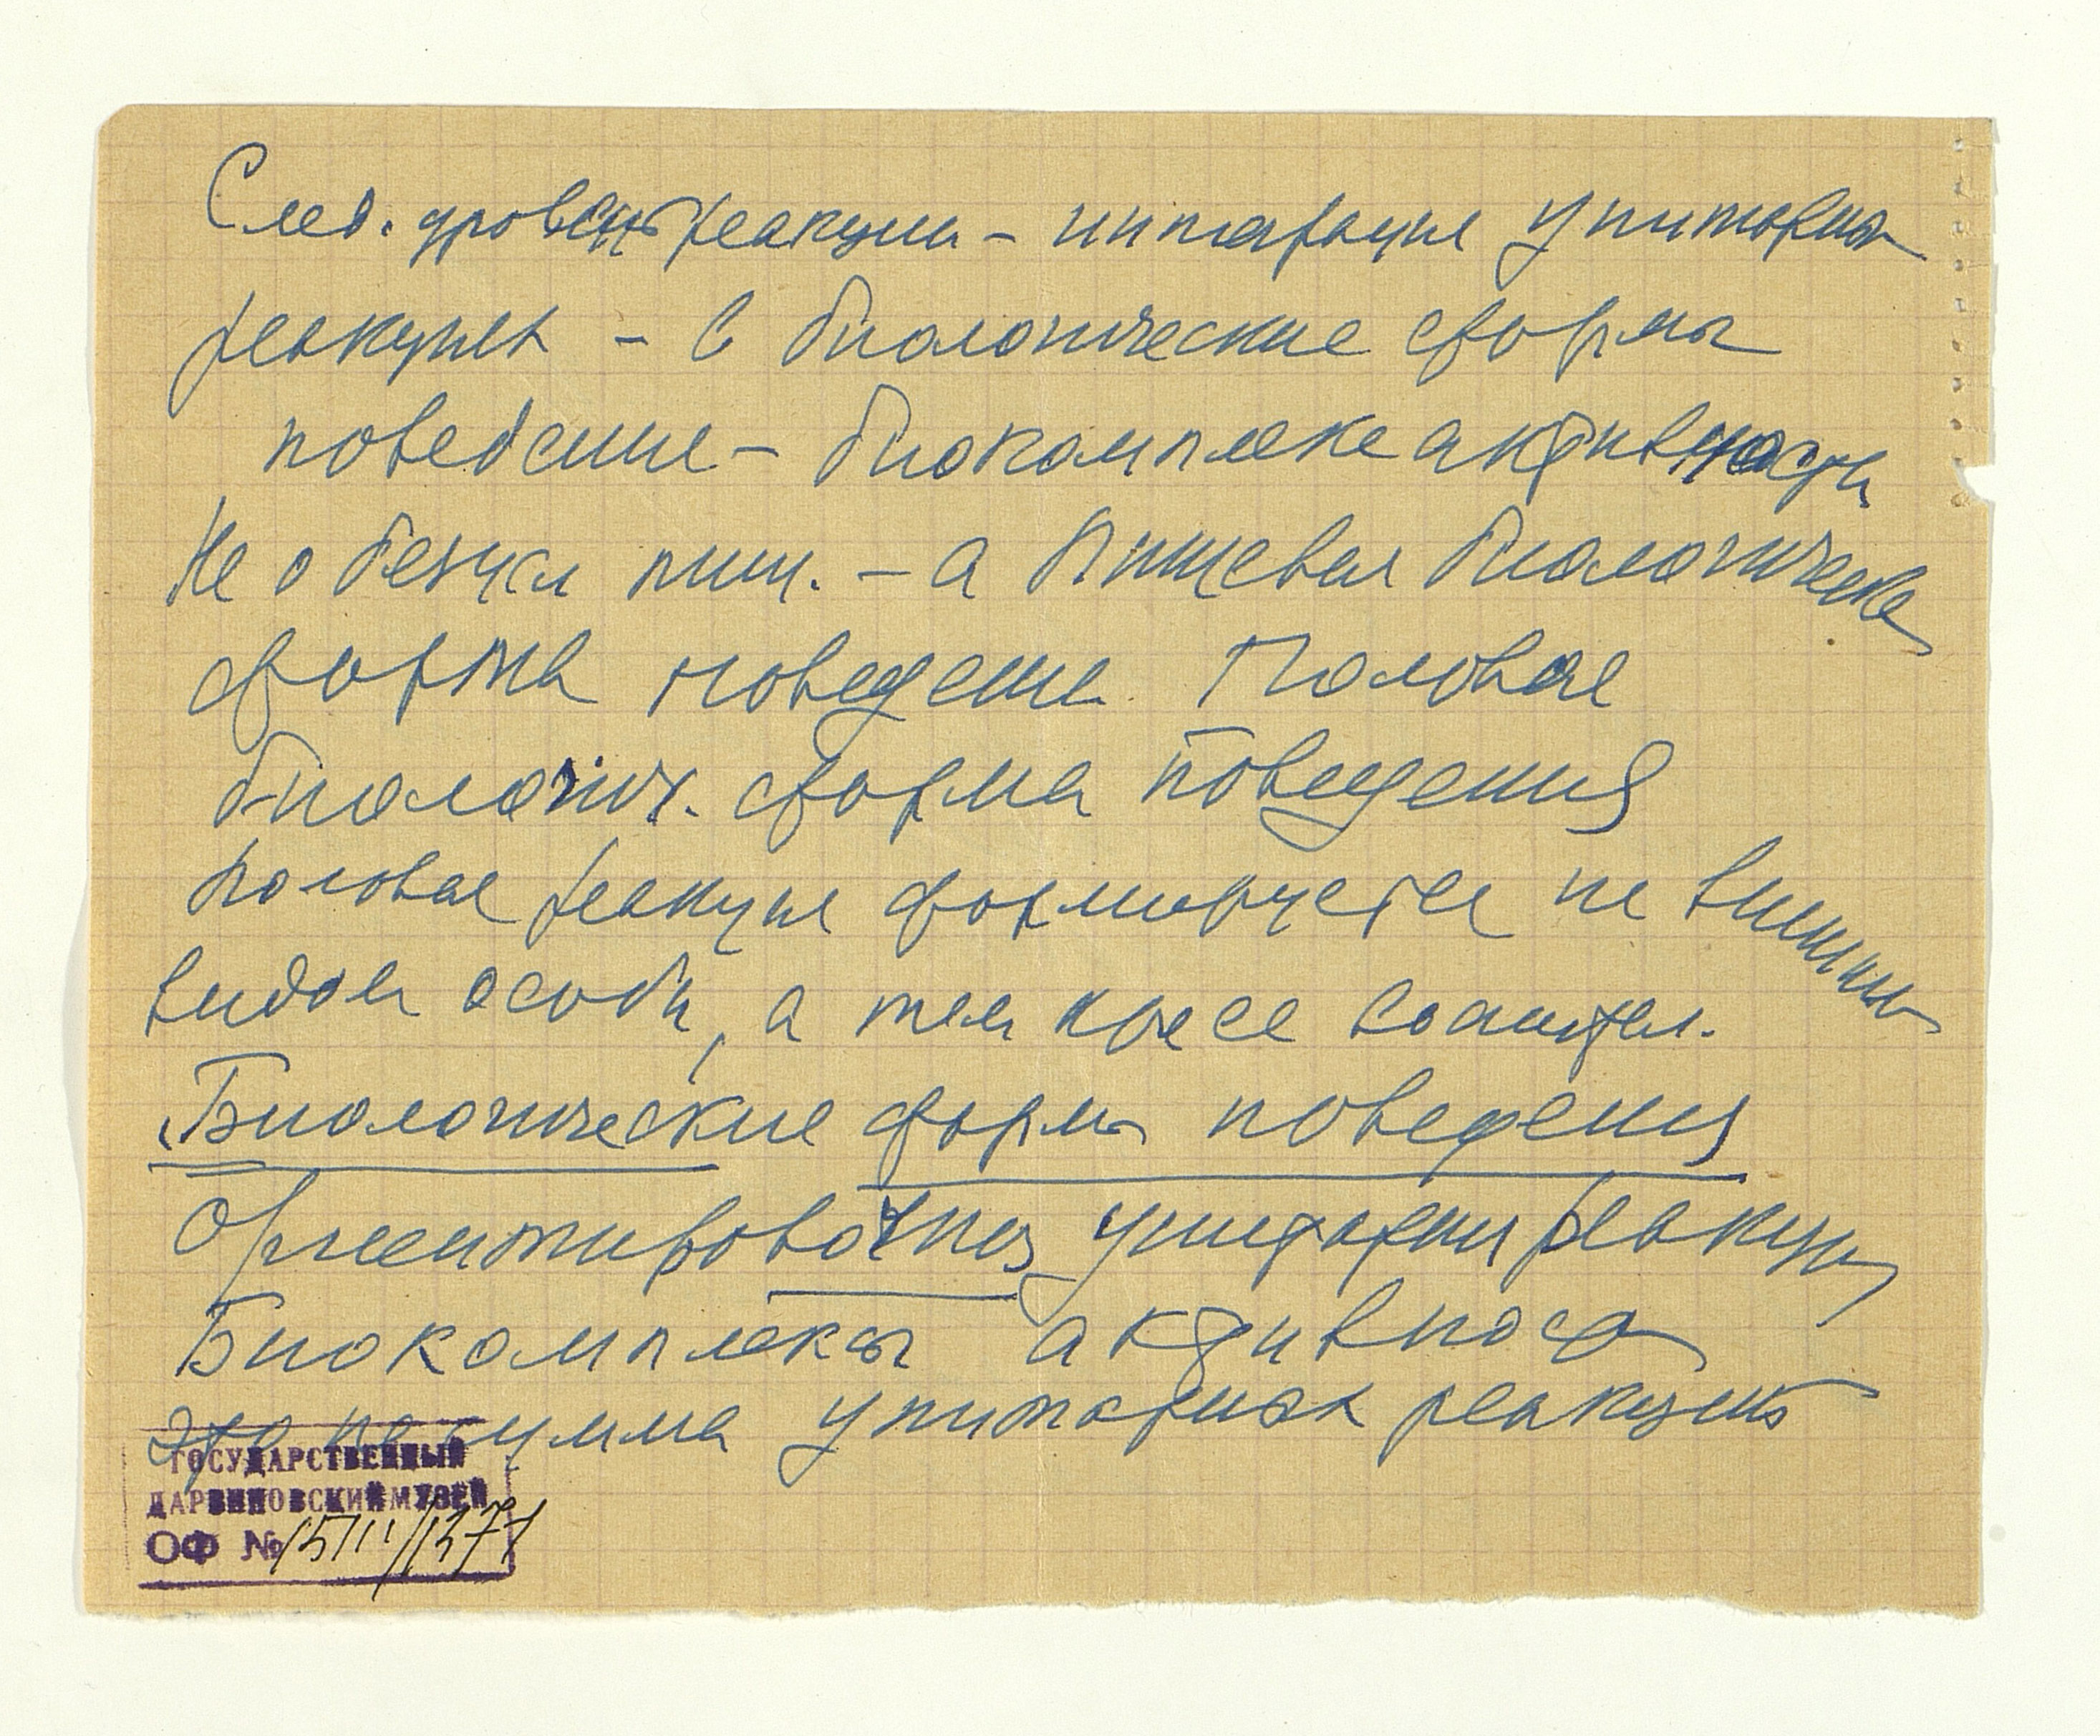 След. уровень реакции – интеграция унитарных
реакций – в биологические формы
поведение – биокомплекс активности
Не обезъял пищ. – а пищевая биологическая
форма поведения Половая
биологич. форма поведения
половая реакция формируется не внешним
видом особи, а тем
Биологические формы поведения
Ориентировочная унитарная реакция
Биокомплексы активности
это не сумма унитарных реакций
ГОСУДАРСТВЕННЫЙ
ДАРВИНОВСКИЙ МУЗЕЙ
ОФ № 15111/1371